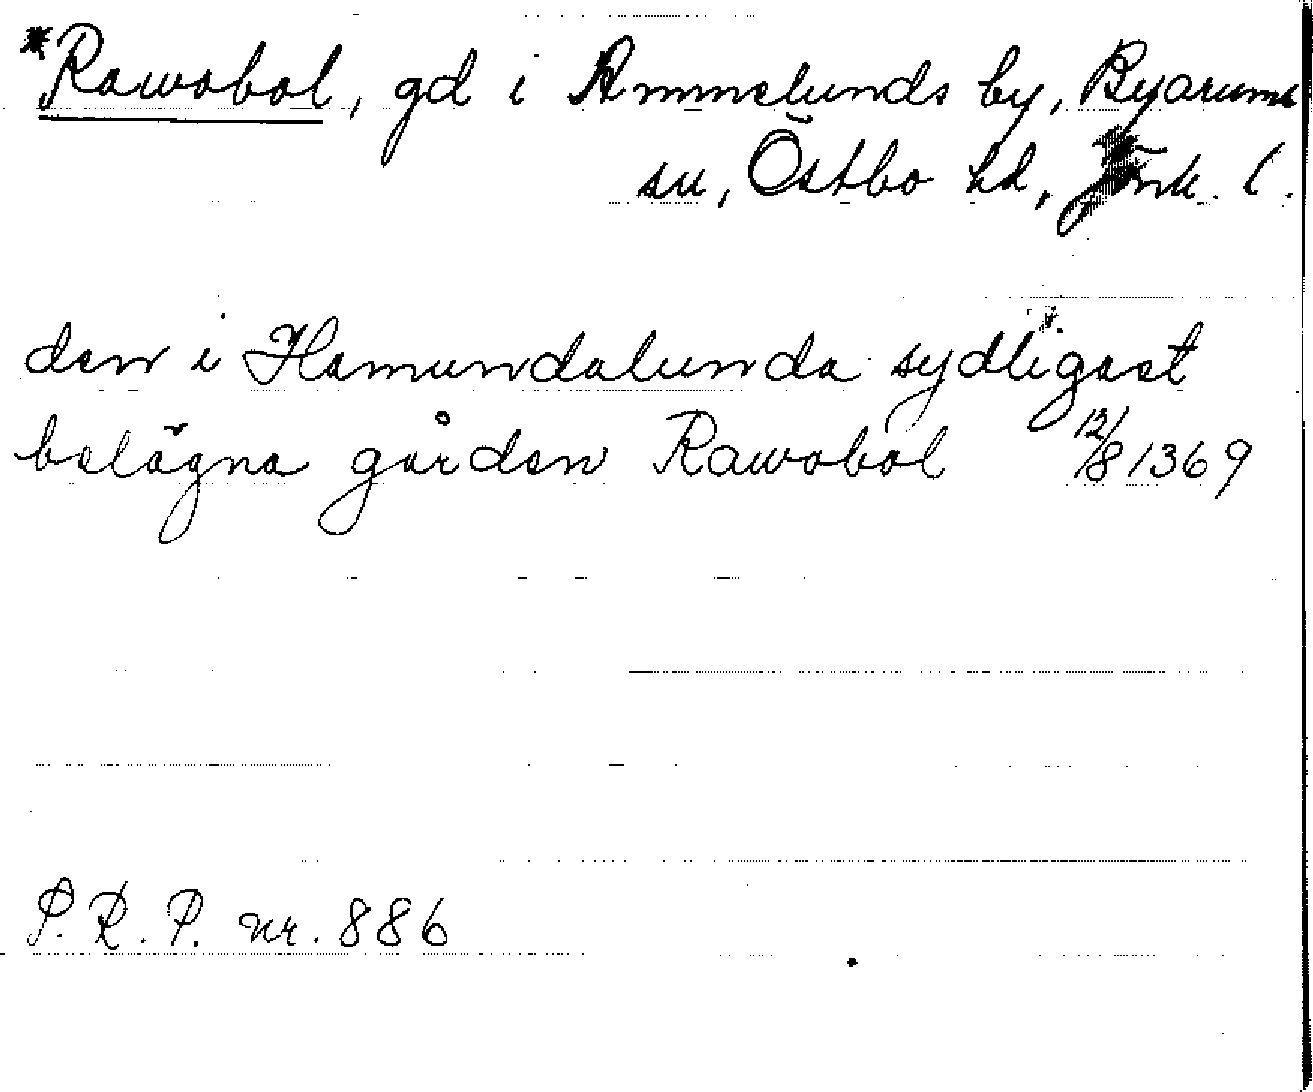 *Rawobol, gd i Ammelunds by, Byarums
sn, Östbo hd, Jönk. l.
den i Hamundalunda sydligast
belägna gården Rawobol 12/8 1369
P.R.P. nr. 886